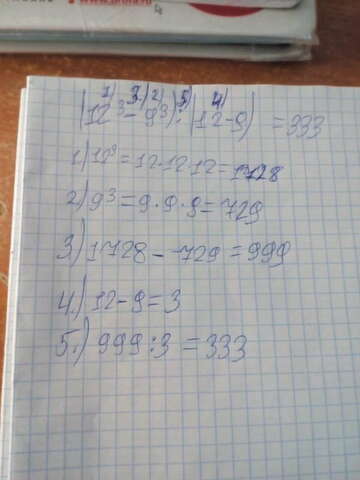 4
1) 3.) 2) 5) 4)
(12³ - 9³) : (12 - 9) = 333
1.) 12³ = 12·12·12 = 1728
2) 9³ = 9·9·9 = 729
3.) 1728 - 729 = 999
4.) 12 - 9 = 3
5.) 999 : 3 = 333